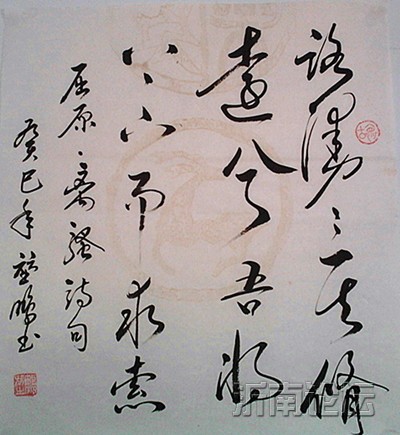 路漫〻其修
遠兮吾将
上下而求索
屈原〻离骚詩句
癸巳年 鹏书
浙南论坛